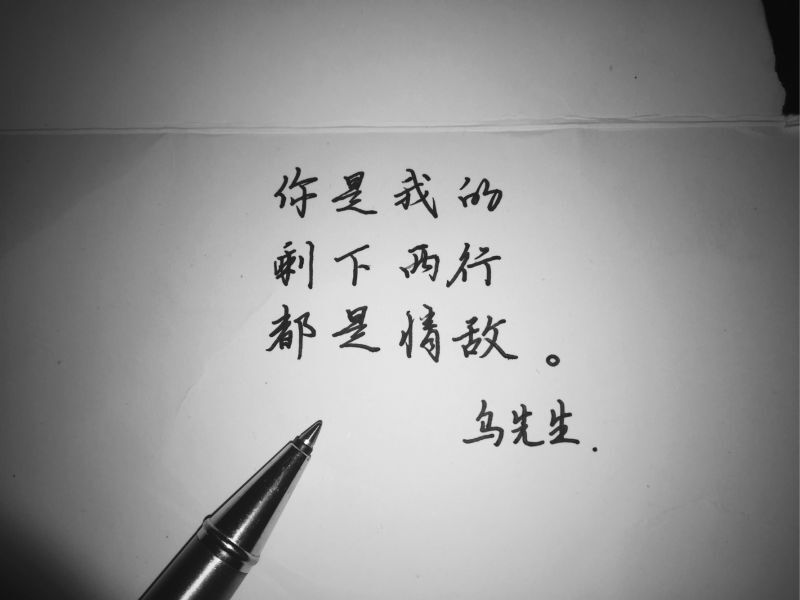 你是我的
剩下两行
都是情敌。
乌先生.